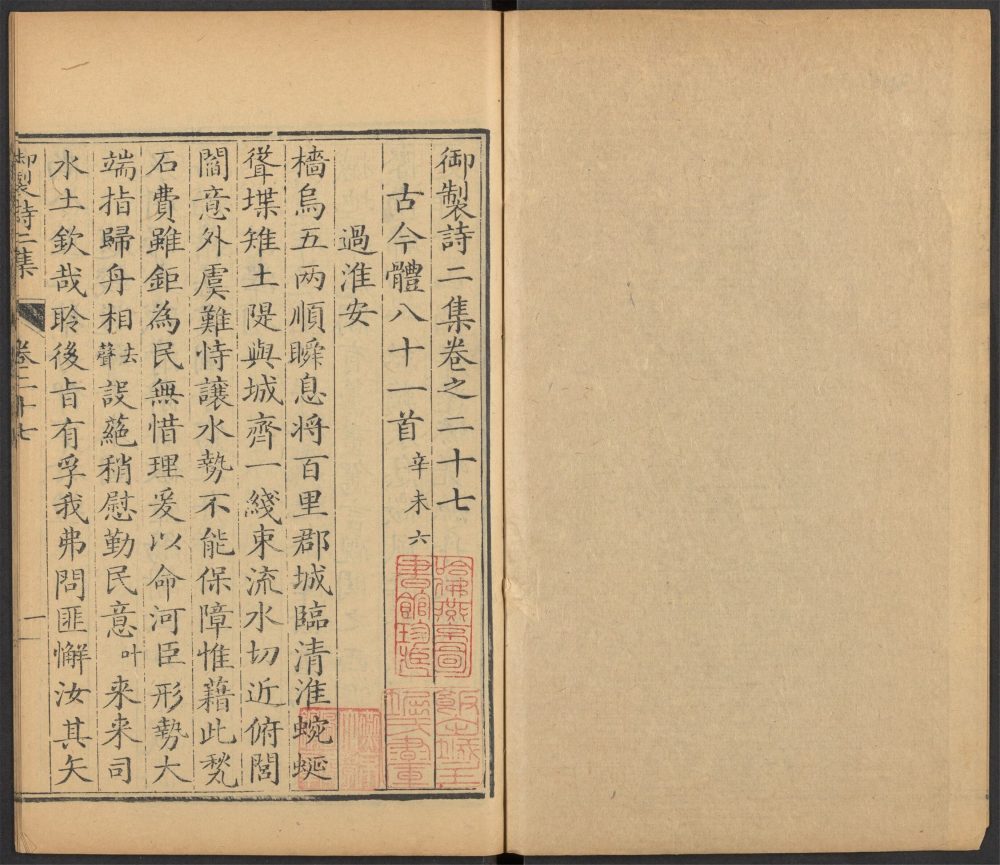 御製詩二集卷之二十七
古今體八十一首 辛未六
過淮安
檣烏五兩順瞬息将百里郡城臨清淮蜿蜒
聳堞雉土隄與城齊一綫束流水切近俯閭
閻意外虞難恃讓水勢不能保障惟藉此甃
石費雖鉅為民無惜理爰以命河臣形勢大
端指歸舟相去聲設蕝稍慰勤民意叶来来司
水土欽哉聆後㫖有孚我弗問匪懈汝其矢
御製詩二集
卷二十七
一
哈佛燕京圖
書館珍藏